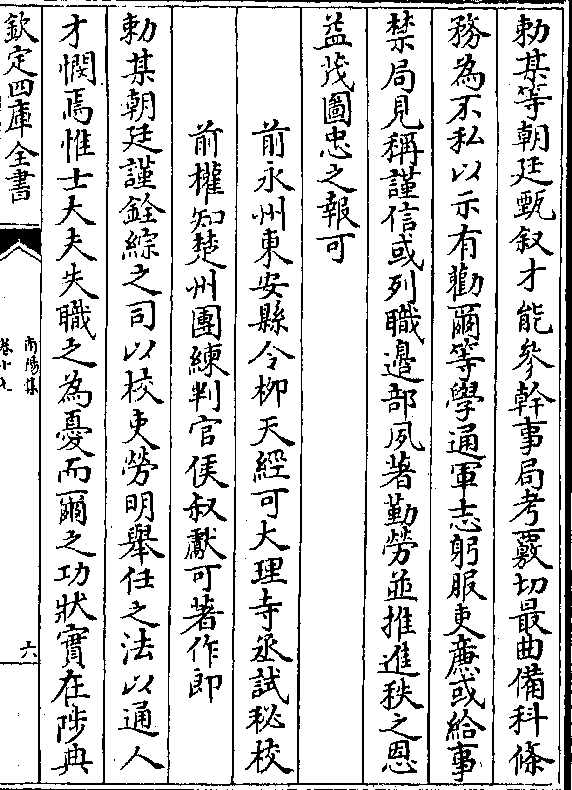 勅某等朝廷甄叙才能參幹事局考覈切最曲備科條
務為不私以示有勸爾等學通軍志躬服吏廉或給事
禁局見稱謹信或列職邊部夙著勤勞並推進秩之恩
益茂圖忠之報可
前永州東安縣令柳天經可大理寺丞試秘校
前權知楚州團練判官侯叔獻可著作郎
勅某朝廷謹銓綜之司以校吏勞明舉任之法以通人
才憫焉惟士大夫失職之為憂而爾之功狀實在陟典
欽定四庫全書
南陽集
六